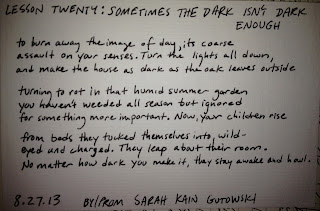 LESSON TWENTY: SOMETIMES THE DARK ISN'T DARK
ENOUGH
to burn away the image of day, its coarse
assault on your senses. Turn the lights all down,
and make the house as dark as the oak leaves outside
turning to rot in that humid summer garden
you haven't weeded all season but ignored
for something more important. Now, your children rise
from beds they tucked themselves into, wild-
eyed and charged. They leap about their room.
No matter how dark you make it, they stay awake and howl.
8.27.13 BY/FROM SARAH KAIN GUTOWSKI